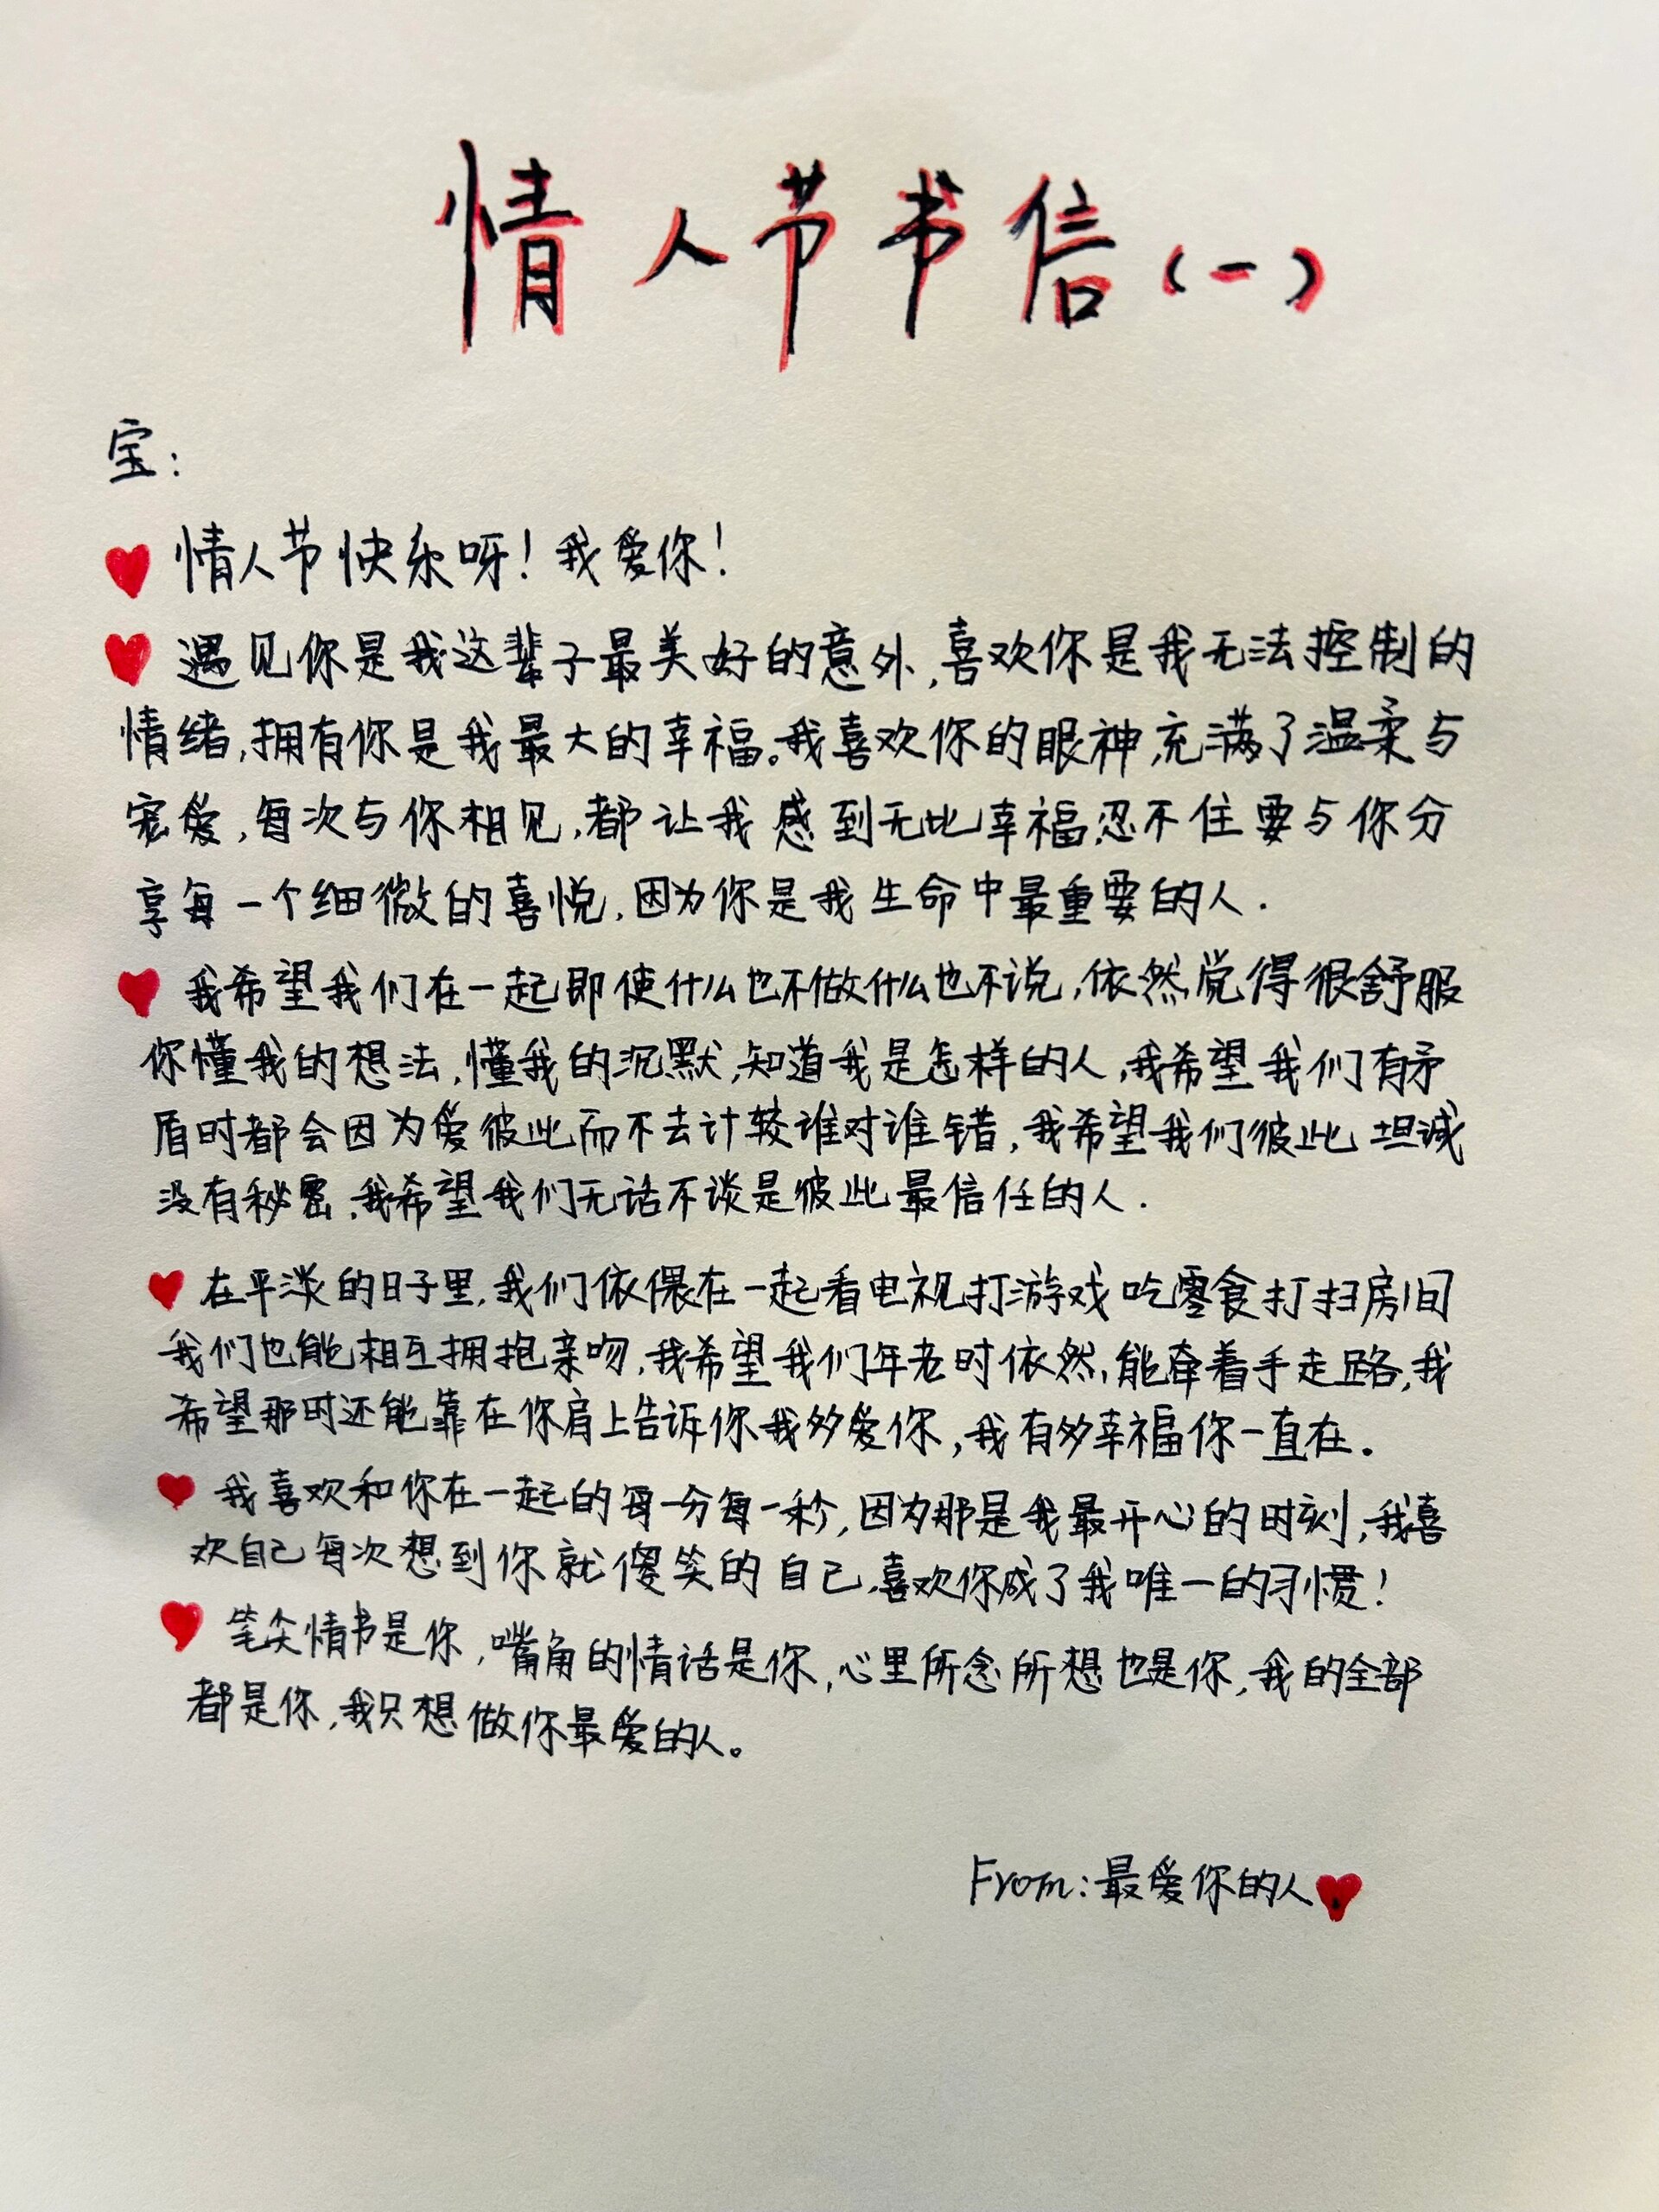 情人节书信(一)
宝:
情人节快乐呀!我爱你!
遇见你是我这辈子最美好的意外,喜欢你是我无法控制的
情绪,拥有你是我最大的幸福。我喜欢你的眼神,充满了温柔与
宠爱,每次与你相见,都让我感到无比幸福,忍不住要与你分
享每一个细微的喜悦,因为你是我生命中最重要的人.
我希望我们在一起即使什么也不做什么也不说,依然觉得很舒服
你懂我的想法,懂我的沉默,知道我是怎样的人,我希望我们有矛
盾时都会因为爱彼此而不去计较谁对谁错,我希望我们彼此坦诚
没有秘密,我希望我们无话不谈是彼此最信任的人.
在平淡的日子里,我们依偎在一起看电视打游戏吃零食打扫房间
我们也能相互拥抱亲吻,我希望我们年老时依然,能牵着手走路,我
希望那时还能靠在你肩上告诉你我多爱你,我有多幸福你一直在。
我喜欢和你在一起的每一分每一秒,因为那是我最开心的时刻,我喜
欢自己每次想到你就傻笑的自己,喜欢你成了我唯一的习惯!
笔尖情书是你,嘴角的情话是你,心里所念所想也是你,我的全部
都是你,我只想做你最爱的人。
From:最爱你的人